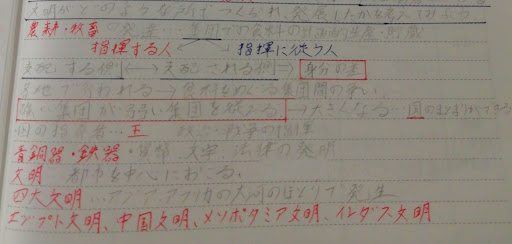 文明がどのような所でつくられ発展したかを考えてみよう
農耕・牧畜の発達…集団での食料の計画的生産・貯蔵
指揮する人 ⟷ 指揮に従う人
支配する側⟷支配される側→身分の差
各地で行われる→食料をめぐる集団間の争い
強い集団が弱い集団を従える→大きくなる…国のまとまりができる
国の指導者…王 政治・戦争の指揮
青銅器・鉄器・貨幣 文字 法律の発明
文明 都市を中心におこる.
四大文明…アジア・アフリカの大河のほとりで発生
エジプト文明、中国文明、メソポタミア文明、インダス文明